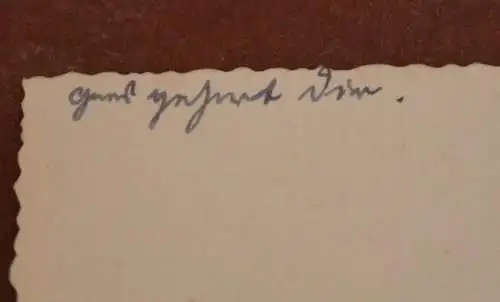 gehört Dir.